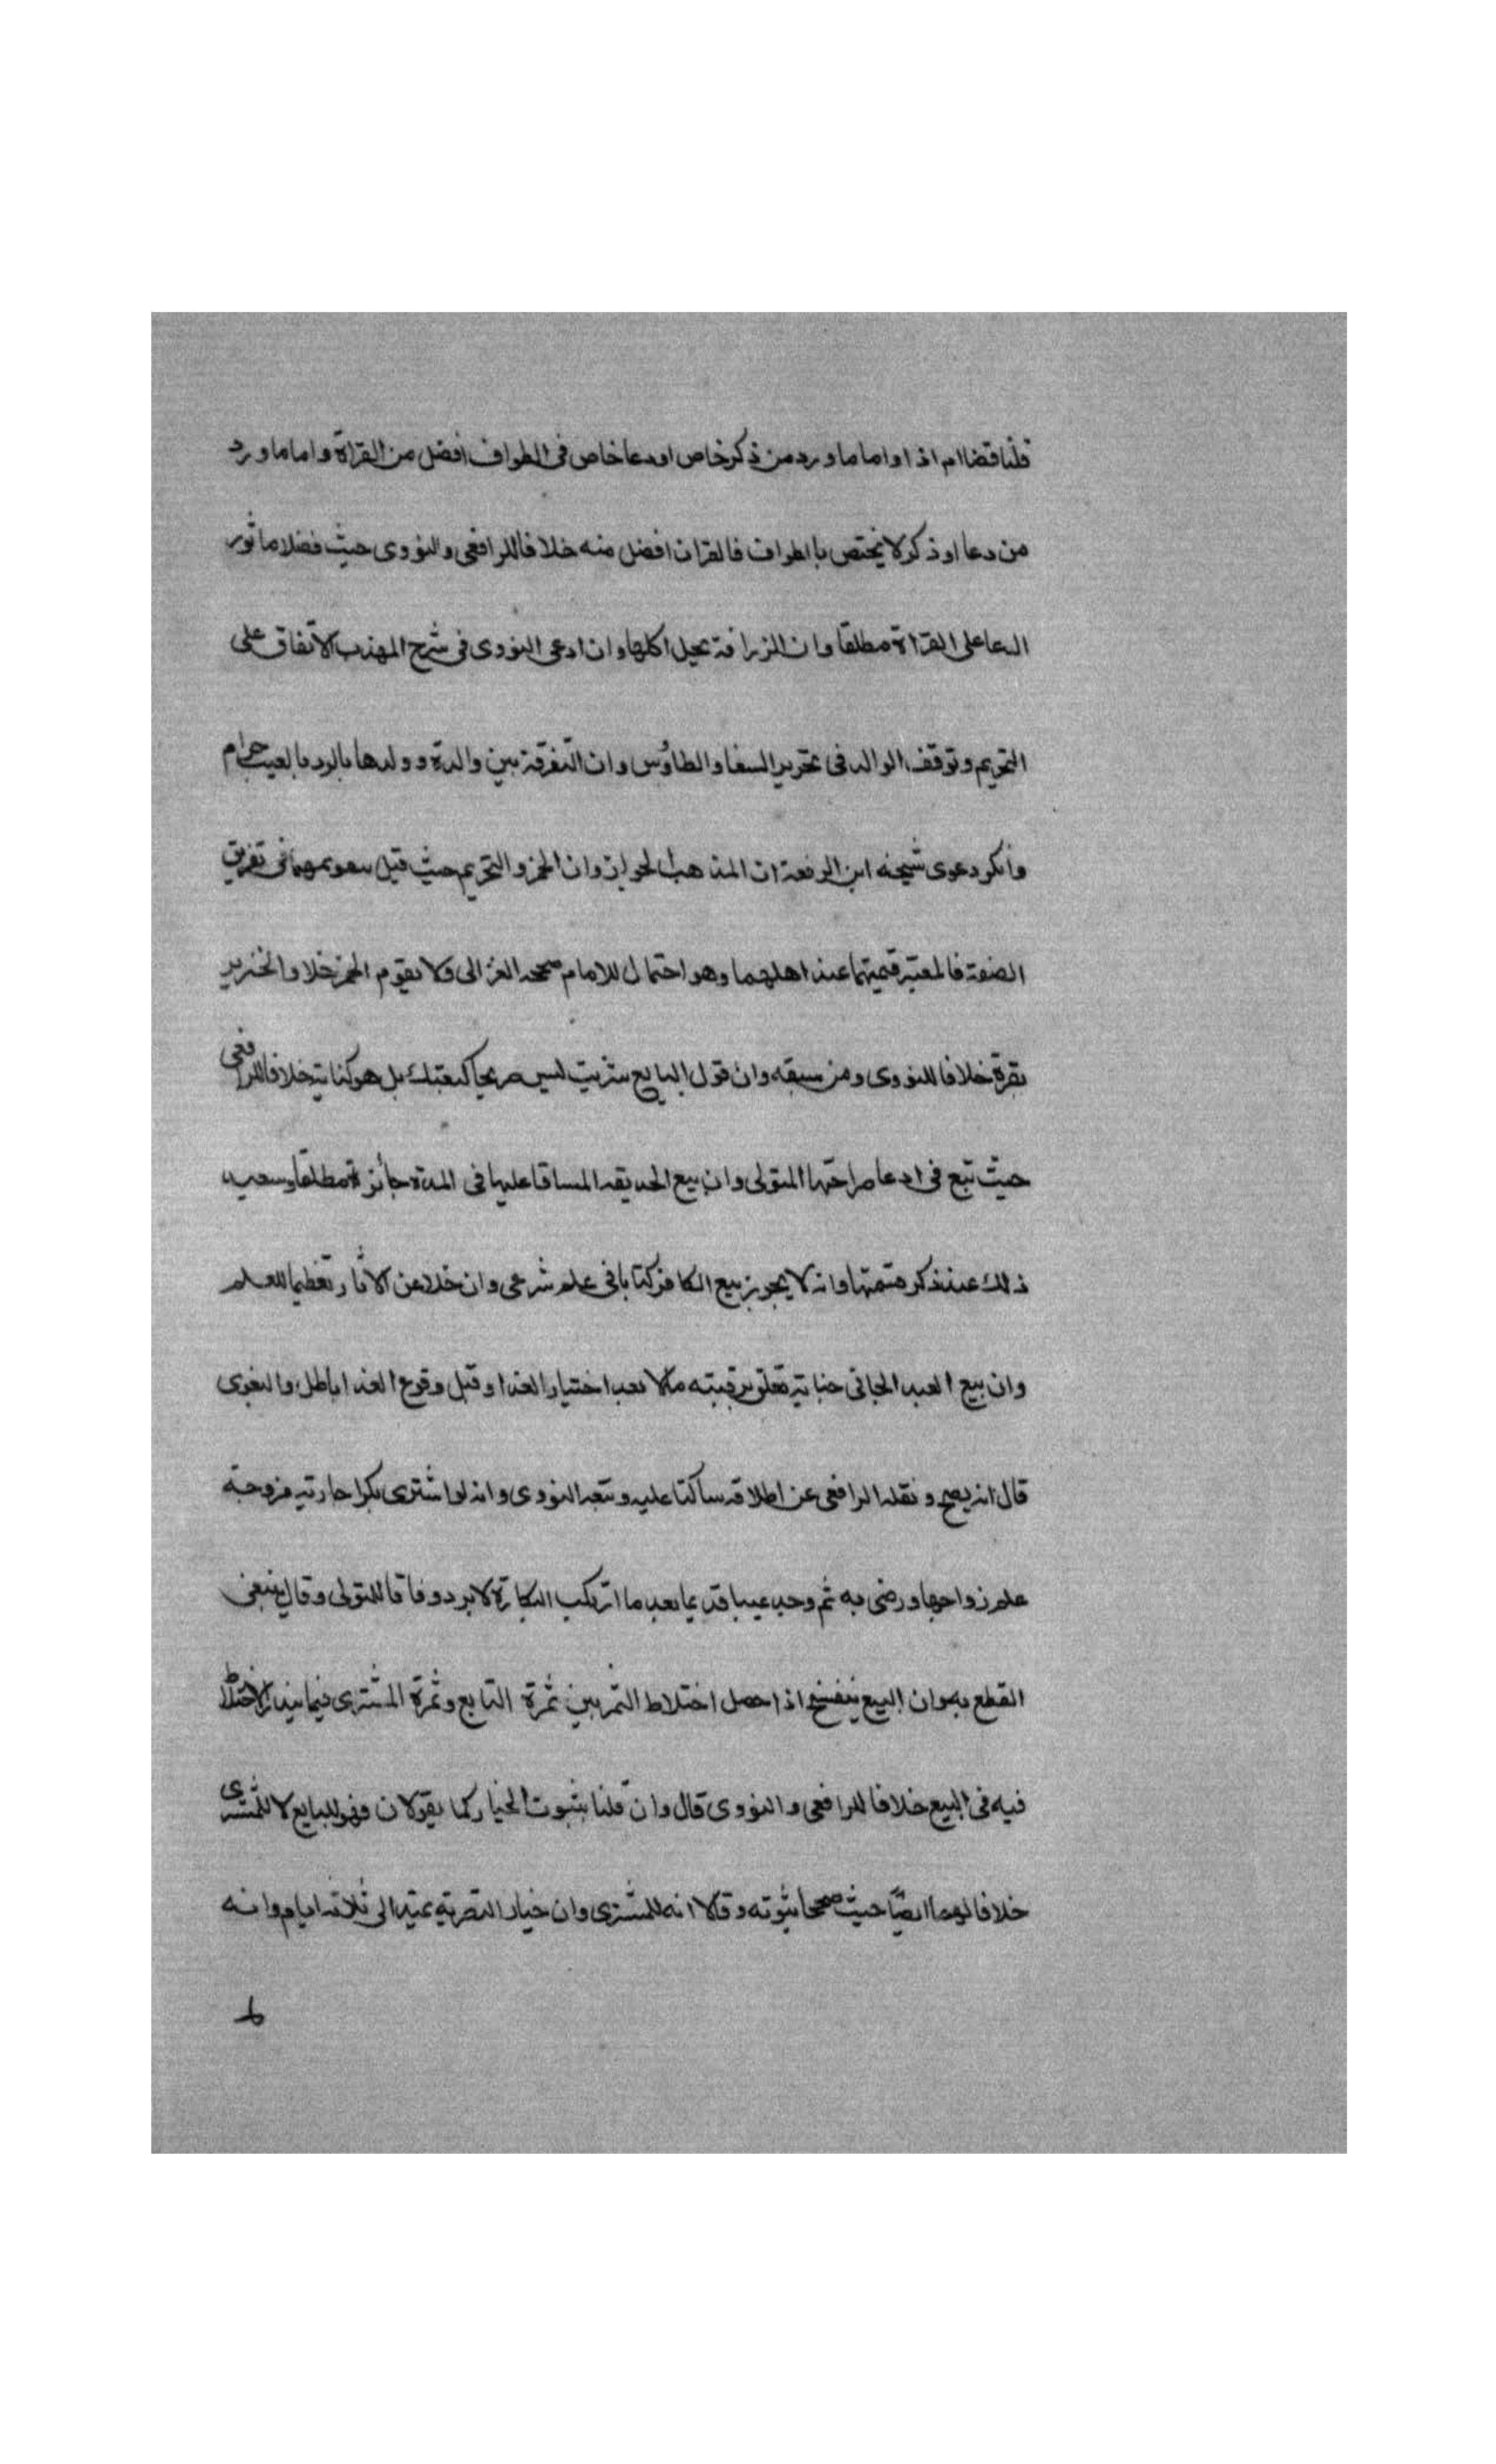 قلنا قضا ام اذا واما ما ورد من ذكر خاص او دعا خاص فى الطواف افضل من القراة واما ما ورد
من دعا او ذكر لا يختص بالطواف فالقران افضل منه خلافا للرافعى والنووى حيث فضلا ماثور
الدعا على القراة مطلقا وان الزرافة يحل اكلها وان ادعى النووى فى شرح المهذب الاتفاق على
التحريم وتوقف الوالد فى تحريم الببغا والطاؤس وان التفرقة بين والدة وولدها بالرد بالعيب حرام
وانكر دعوى شيخه ابن الرفعة ان المذهب الجواز وان الخمر و حيث قيل فى تفريق
الصفقة فالمعتبر قيمتهما عند اهلهما وهو احتمال للامام صححه الغزالى ولا يقوم الخمر خلا والخنزير
بقرة خلافا للنووى ومن سبقه وان قول البايع شريت ليس صريحا كبعتك بل هو كناية خلافا للرافعى
حيث تبع فى ادعا صراحتها المتولى وان بيع الحديقة المساقا عليها فى المدة جائزة مطلقا
ذلك عند ذكر وانه لا يجوز بيع الكافر كتابا فى علم شرعى وان خلا عن الاثار تعظيما للعلم
وان بيع العبد الجانى جناية تعلق برقبته مالا بعد اختيار الفدا وقبل وقوع الفدا باطل والبغوى
قال انه يصح ونقله الرافعى عن اطلاقه ساكتا عليه وتبعه النووى وانه لو اشترى بكرا جارية مزوجة
علم زواجها ورضى به ثم وجد عيبا قديما بعد ما البكارة لا يرد وفاقا للمتولى وقال ينبغى
القطع به وان البيع ينفسخ اذا حصل اختلاط الثمر بين ثمرة التابع وثمرة المشترى فيما يندر الاختلاط
فيه فى البيع خلافا للرافعى والنووى قال وان قلنا بثبوت الخيار كما يقولان فهو للبايع لا للمشترى
خلافا لهما ايضا حيث صححا ثبوته وقالا انه للمشترى وان خيار التصرية يمتد الى ثلاثة ايام وانه